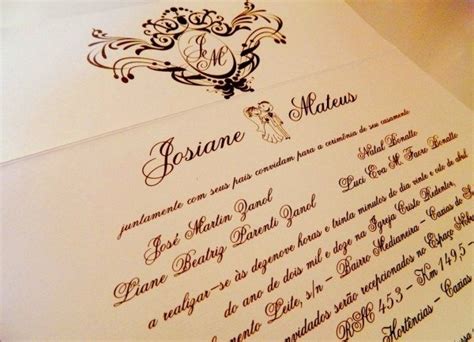 J M
Josiane Mateus
juntamente com seus pais convidam para a cerimônia de seu casamento
José Martin Zanol Natal Bonatto
Liane Beatriz Parenti Zanol Luci Eva M. Faoro Bonatto
a realizar-se às dezenove horas e trinta minutos do dia vinte e oito de
do ano de dois mil e doze na Igreja Cristo Redentor,
mento Leite, s/n - Bairro Medianeira - Caxias do S
nvidados serão recepcionados no Espaço
RSC 453 - Km 149,5
Hortências - Caxias